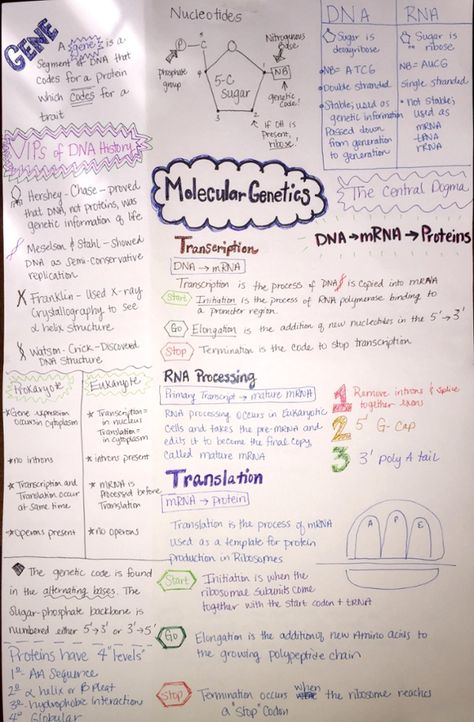 GENE
A gene is a
segment of DNA that
codes for a protein
which codes for a
trait
Nucleotides
P
C
5
Phosphate
group
5-C
Sugar
Nitrogenous
Base
NB
genetic
code!
1
2
3
if OH is
present,
ribose!
DNA
Sugar is
deoxyribose
NB= ATCG
Double stranded
Stable; used as
genetic information
Passed down
from generation
to generation
RNA
Sugar is
ribose
NB= AUCG
Single stranded
Not stable;
used as
mRNA
tRNA
rRNA
VIPs of DNA History
Hershey-Chase - proved
that DNA, not proteins, was
genetic information of life
Meselson & Stahl - Showed
DNA as semi-conservative
replication.
Franklin - Used X-ray
Crystallography to see
α helix structure
Watson-Crick - Discovered
DNA Structure
Molecular Genetics
The Central Dogma
DNA→mRNA→Proteins
Transcription
DNA → mRNA
Transcription is the process of DNA is copied into mRNA
Start Initiation is the process of RNA polymerase binding to
a promoter region.
Go Elongation is the addition of new nucleotides in the 5'→3'
Stop Termination is the code to stop transcription
Prokaryote
Gene expression
occurs in cytoplasm
no introns
Transcription and
Translation occur
at same time
Operons present
Eukaryote
Transcription=
in nucleus
Translation=
in cytoplasm
introns present
mRNA is
Processed before
Translation
no operons
RNA Processing
Primary Transcript → mature mRNA
RNA processing occurs in Eukaryotic
Cells and takes the pre-mRNA and
edits it to become the final copy,
Called mature mRNA
1 Remove introns & splice
together exons
2 5' G-Cap
3 3' poly A tail
Translation
mRNA → protein
Translation is the process of mRNA
used as a template for protein
production in Ribosomes
A P E
Start Initiation is when the
ribosomal subunits come
together with the start codon + tRNA
Go Elongation is the addition of new Amino acids to
the growing polypeptide chain
Stop Termination occurs when the ribosome reaches
a "stop" Codon
The genetic code is found
in the alternating bases. The
Sugar-phosphate backbone is
numbered either 5'→3' or 3'→5'
Proteins have 4 "levels"
1° AA Sequence
2° α helix or B Pleat
3° hydrophobic interaction
4° Globular